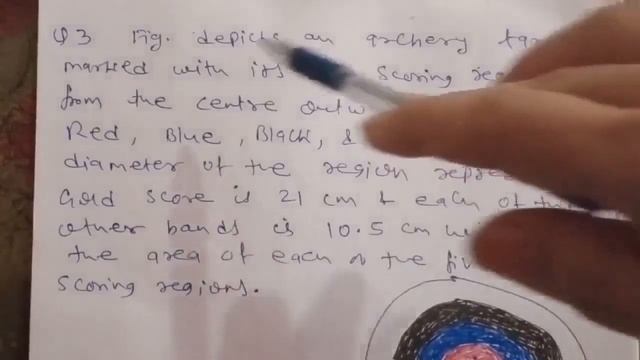 Q3 Fig. depicts an archery
marked with its Scoring
from the centre
Red, Blue, Black, &
diameter of the region
Gold score is 21 cm & each of
other bands is 10.5 cm
the area of each of the
scoring regions.